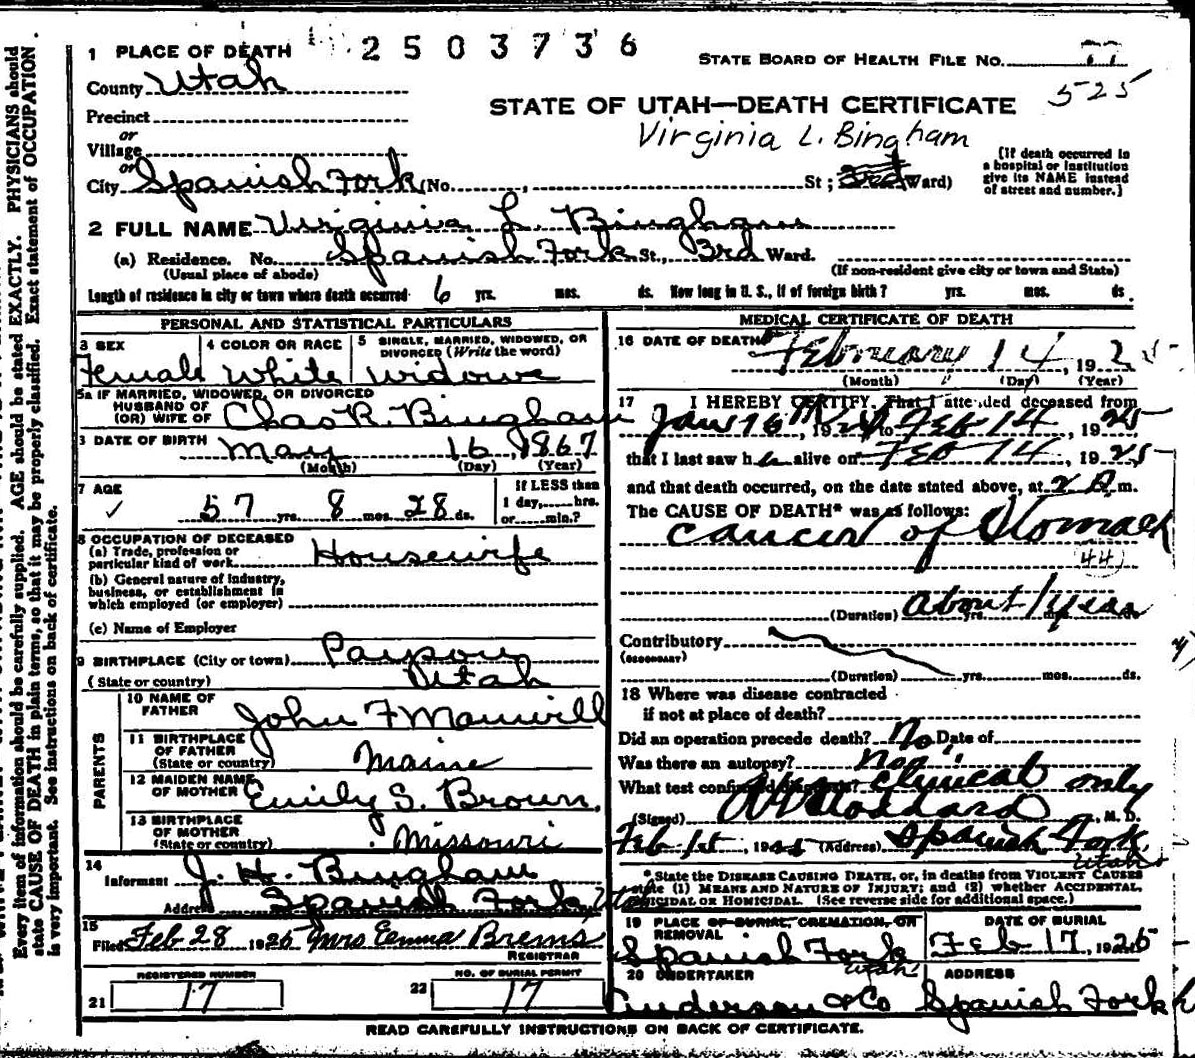 2503736
1 PLACE OF DEATH
STATE BOARD OF HEALTH FILE NO.
525
County Utah
STATE OF UTAH—DEATH CERTIFICATE
Precinct
Virginia L. Bingham
or
Village
or
City Spanish Fork (No. , St ; 3rd Ward)
[If death occurred in
a hospital or institution
give its NAME instead
of street and number.]
2 FULL NAME Virginia L. Bingham
(a) Residence. No. Spanish Fork St., 3rd Ward.
(Usual place of abode)
(If non-resident give city or town and State)
Length of residence in city or town where death occurred 6 yrs. mos. ds. How long in U. S., if of foreign birth? yrs. mos. ds.
PERSONAL AND STATISTICAL PARTICULARS
3 SEX
Female
4 COLOR OR RACE
White
5 SINGLE, MARRIED, WIDOWED, OR
DIVORCED (Write the word)
Widowe
5a IF MARRIED, WIDOWED, OR DIVORCED
HUSBAND OF
(OR) WIFE OF Chas R. Bingham
DATE OF BIRTH May 16, 1867
(Month) (Day) (Year)
7 AGE
57 yrs. 8 mos. 28 ds.
If LESS than
1 day, hrs.
or min.?
8 OCCUPATION OF DECEASED
(a) Trade, profession or
particular kind of work Housewife
(b) General nature of industry,
business, or establishment in
which employed (or employer)
(c) Name of Employer
9 BIRTHPLACE (City or town) Payson
(State or country) Utah
PARENTS
10 NAME OF
FATHER John F Manwill
11 BIRTHPLACE
OF FATHER
(State or country) Maine
12 MAIDEN NAME
OF MOTHER Emily S. Brown,
13 BIRTHPLACE
OF MOTHER
(State or country) Missouri
14
Informant J. H. Bingham
Address Spanish Fork, Utah
15
Filed Feb 28 1925 Mrs Emma Brems
REGISTRAR
REGISTERED NUMBER
21 17
NO. OF BURIAL PERMIT
22 17
MEDICAL CERTIFICATE OF DEATH
16 DATE OF DEATH February 14, 1925
(Month) (Day) (Year)
17 I HEREBY CERTIFY, That I attended deceased from
Jan 16th, 1924 to Feb 14, 1925
that I last saw h alive on Feb 14, 1925
and that death occurred, on the date stated above, at 2 A m.
The CAUSE OF DEATH* was as follows:
Cancer of Stomach
(44)
(Duration) about 1 year yrs. mos. ds.
Contributory
(SECONDARY)
(Duration) yrs. mos. ds.
18 Where was disease contracted
if not at place of death?
Did an operation precede death? No Date of
Was there an autopsy? No
What test confirmed diagnosis? Clinical only
(Signed) Stoddard, M. D.
Feb 1925 (Address) Spanish Fork,
Utah
* State the DISEASE CAUSING DEATH, or, in deaths from VIOLENT CAUSES
state (1) MEANS AND NATURE OF INJURY; and (2) whether ACCIDENTAL,
SUICIDAL OR HOMICIDAL. (See reverse side for additional space.)
19 PLACE OF BURIAL, CREMATION, OR
REMOVAL
Spanish Fork
Utah
DATE OF BURIAL
Feb 17, 1925
20 UNDERTAKER
Anderson & Co
ADDRESS
Spanish Fork
READ CAREFULLY INSTRUCTIONS ON BACK OF CERTIFICATE.
Every item of information should be carefully supplied. AGE should be stated EXACTLY. PHYSICIANS should
state CAUSE OF DEATH in plain terms, so that it may be properly classified. Exact statement of OCCUPATION
is very important. See instructions on back of certificate.